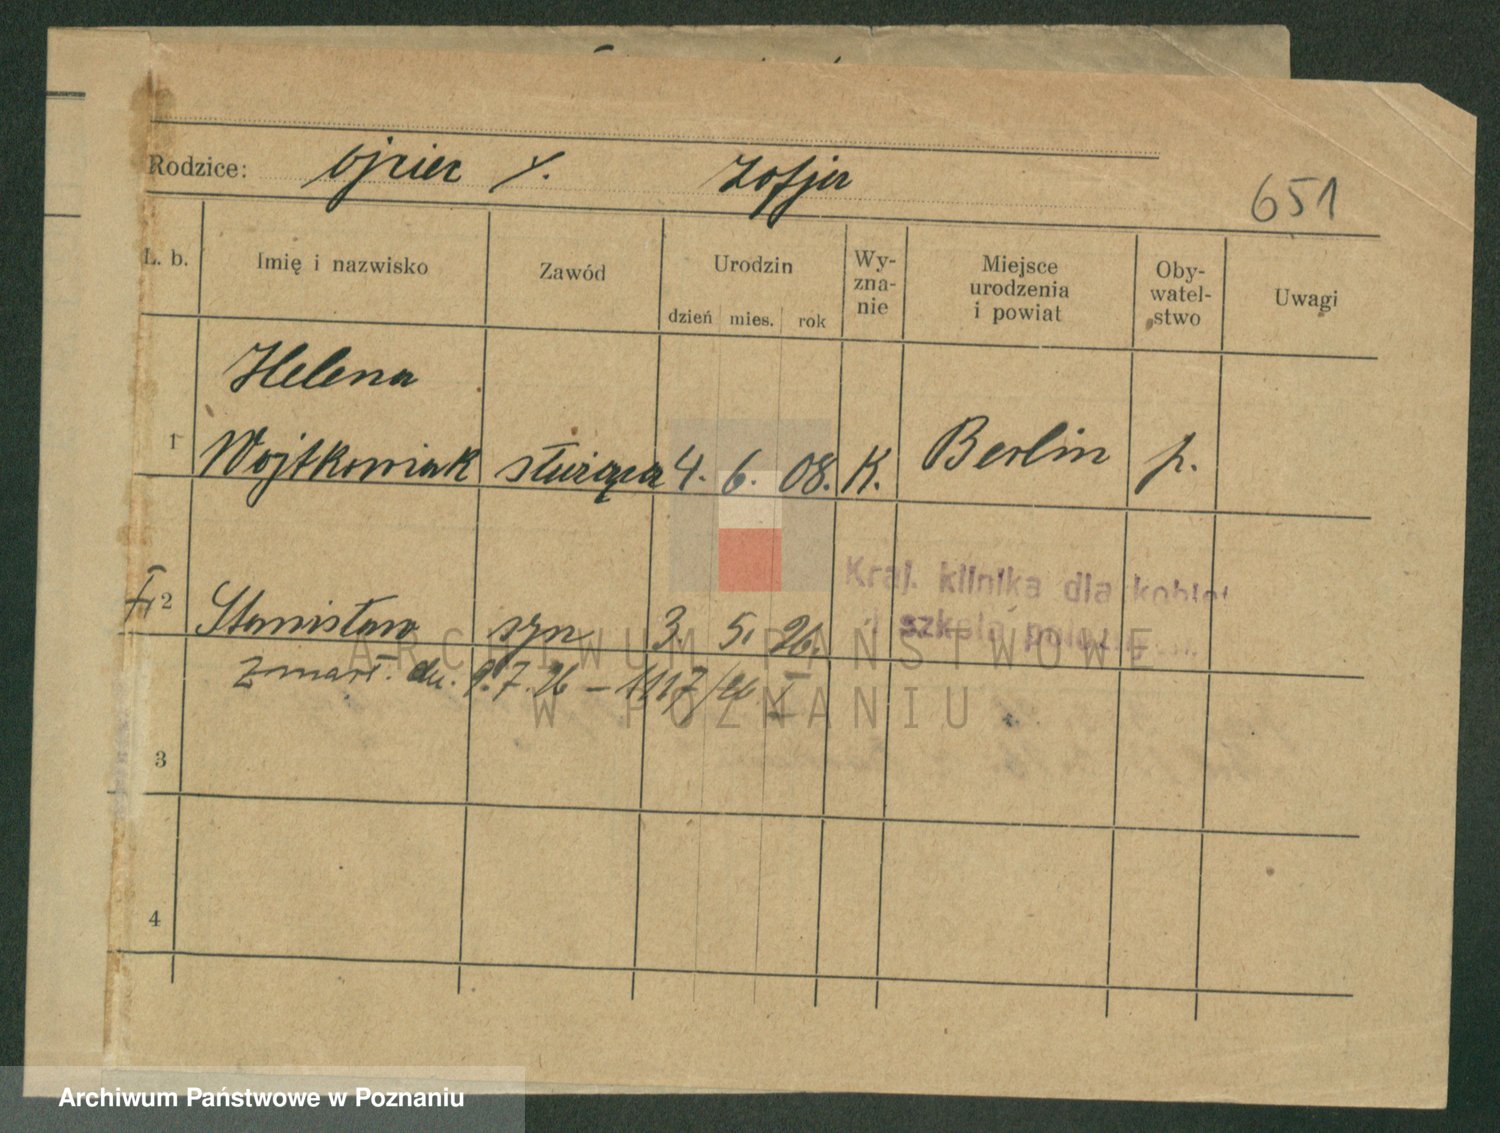 Rodzice: ojciec †. Zofja
651
L. b. Imię i nazwisko Zawód Urodzin Wy-zna-nie Miejsce urodzenia i powiat Oby-watel-stwo Uwagi
dzień mies. rok
Helena
1 Wojtkowiak służąca 4. 6. 08. K. Berlin p.
Kraj. klinika dla kobiet
i szkoła
† 2 Stanisław syn 3. 5. 26.
zmarł. dn. 9.7.26 – 1117/26 I
3
4
ARCHIWUM PAŃSTWOWE
W POZNANIU
Archiwum Państwowe w Poznaniu